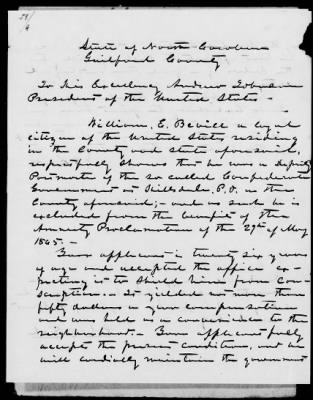 State of North Carolina
Guilford County
To His Excellency Andrew Johnson
President of the United States -
William. E. Bevill a loyal
citizen of the United States residing
in the County and state aforesaid,
respectfully shows that he was a Deputy
Postmaster of the so called Confederate
Government at Hillsdale, P.O. in the
County aforesaid; - and as such he is
excluded from the benefit of the
Amnesty Proclamation of the 29th of May
1865. -
Your applicant is twenty six years
of age and accepted the office ex-
pecting it to shield him from Con-
scription. It yielded no more than
fifty dollars a year compensation
and was held as a convenience to the
neighborhood. - Your applicant fully
accepts the present conditions, and he
will cordially maintain the government